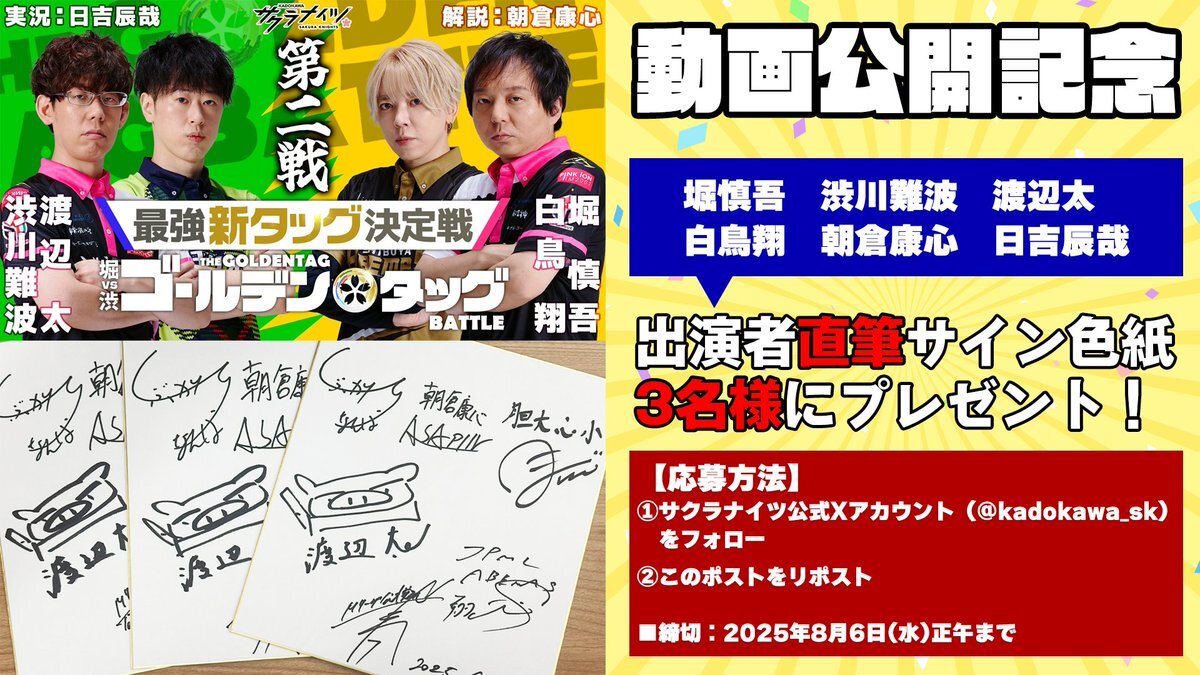 実況:日吉辰哉
KADOKAWA
サクラナイツ
SAKURA KNIGHTS
解説:朝倉康心
第二戦
渡辺太
渋川難波
堀慎吾
白鳥翔
PINK ION
最強新タッグ決定戦
堀vs渋
THE GOLDENTAG
ゴールデンタッグ
BATTLE
朝倉康心
ASAPIN
胆大心小
渡辺太
渡辺太
渡辺
JPML
ABEMAS
動画公開記念
堀慎吾 渋川難波 渡辺太
白鳥翔 朝倉康心 日吉辰哉
出演者直筆サイン色紙
3名様にプレゼント!
【応募方法】
①サクラナイツ公式Xアカウント(@kadokawa_sk)
をフォロー
②このポストをリポスト
■締切:2025年8月6日(水)正午まで